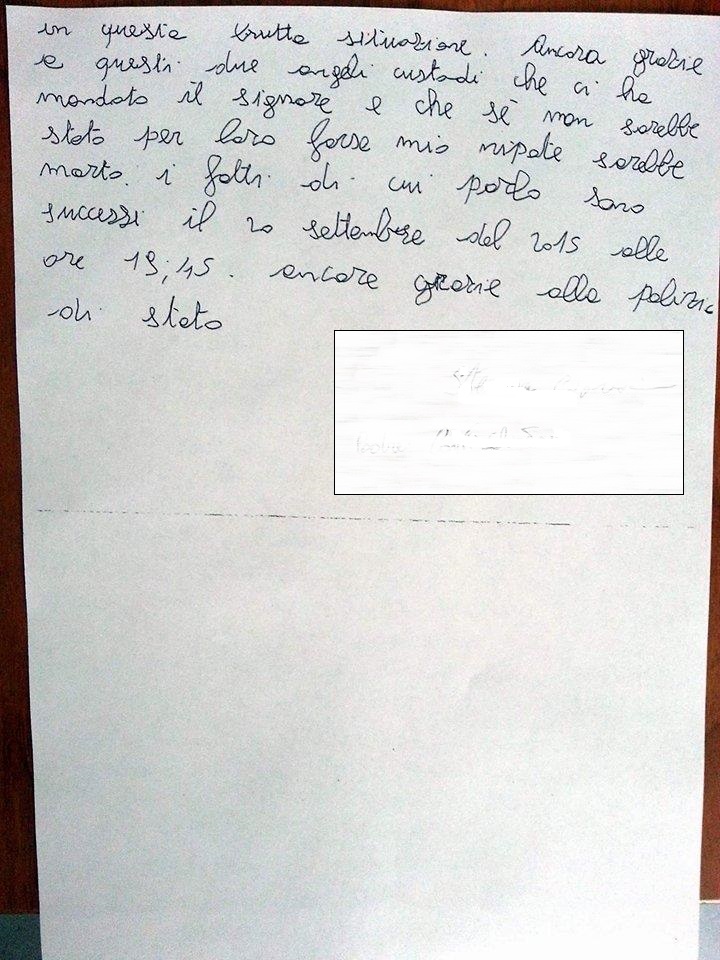 in questa brutta situazione. Ancora grazie
a questi due angeli custodi che ci ha
mandato il signore e che sè non sarebbe
stato per loro forse mio nipote sarebbe
morto. i fatti di cui parlo sono
successi il 20 settembre del 2015 alle
ore 19;45. ancora grazie alla polizia
di stato